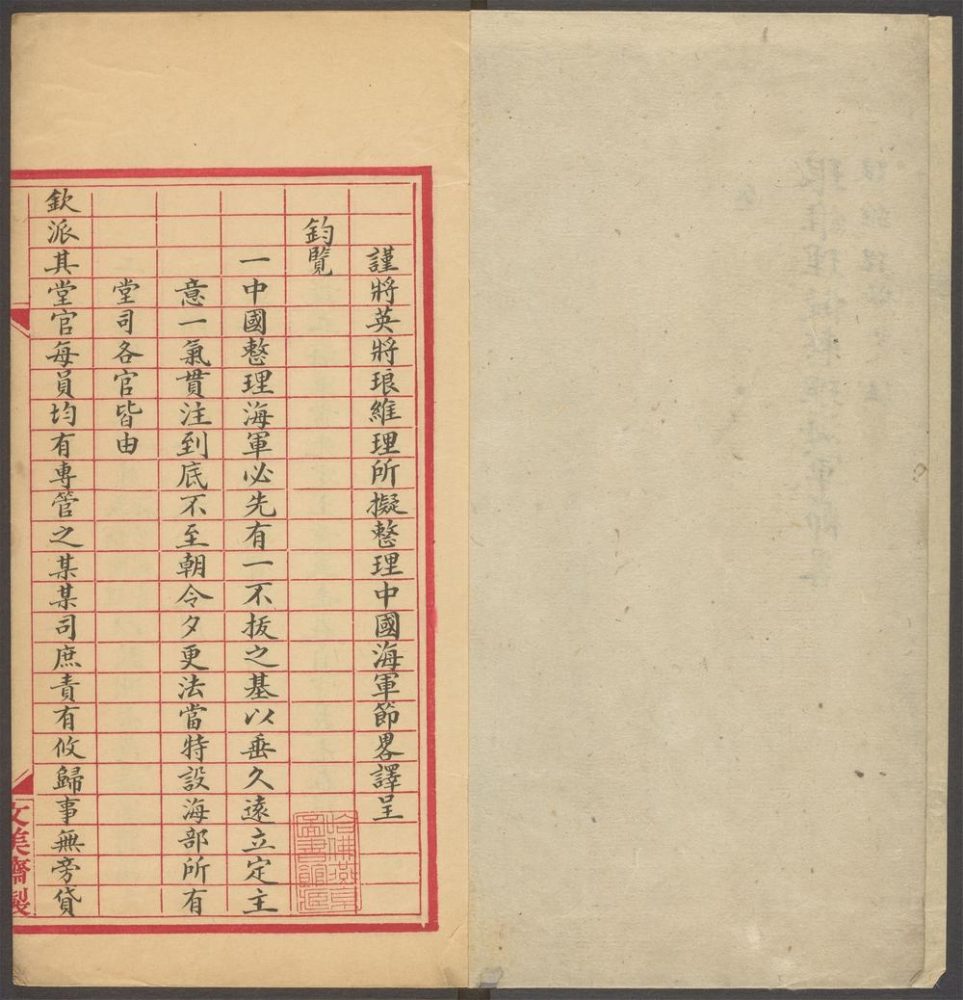 謹將英將琅維理所擬整理中國海軍節畧譯呈
鈞覽
一中國整理海軍必先有一不拔之基以垂久遠立定主
意一氣貫注到底不至朝令夕更法當特設海部所有
堂司各官皆由
欽派其堂官每員均有專管之某某司庶責有攸歸事無旁貸
文美齋製
哈佛燕京
圖書館